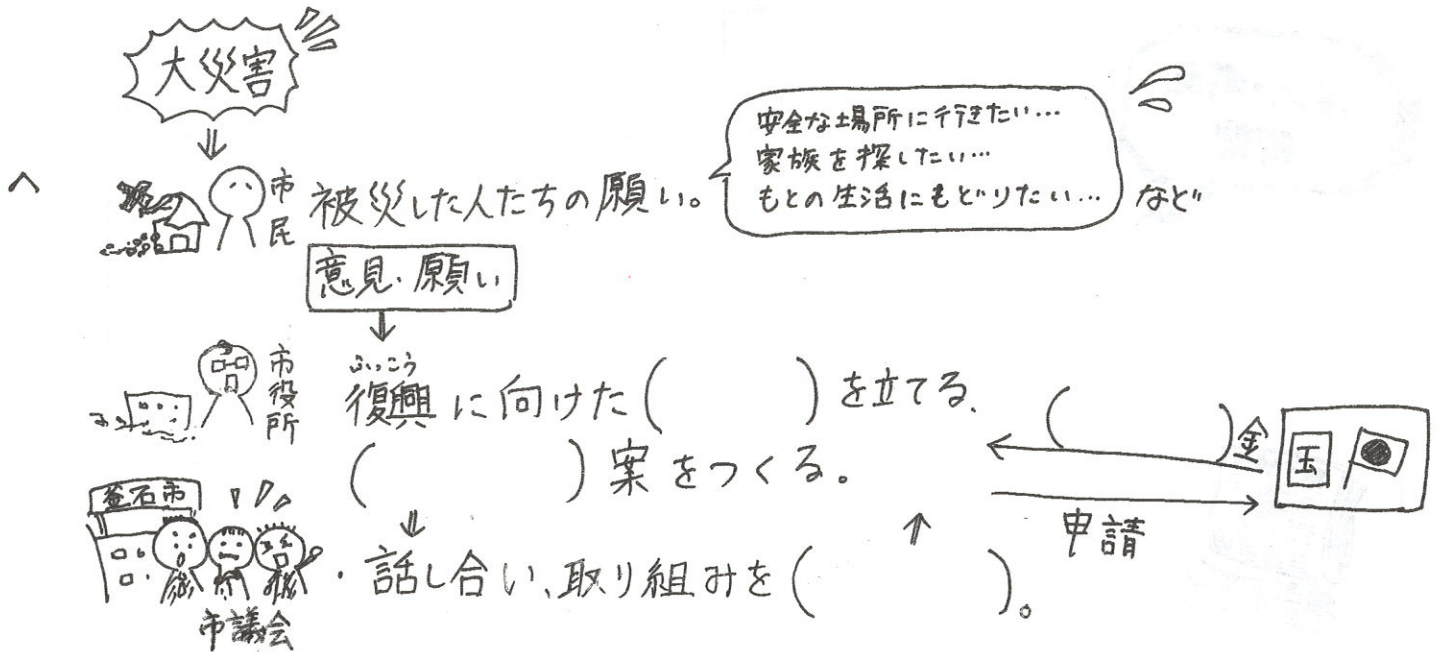 大災害
市民
被災した人たちの願い。
安全な場所に行きたい…
家族を探したい…
もとの生活にもどりたい…
など
意見・願い
市役所
ふっこう
復興に向けた(　　　)を立てる。
(　　　)案をつくる。
(　　　)金
国
申請
釜石市
市議会
・話し合い、取り組みを(　　　)。